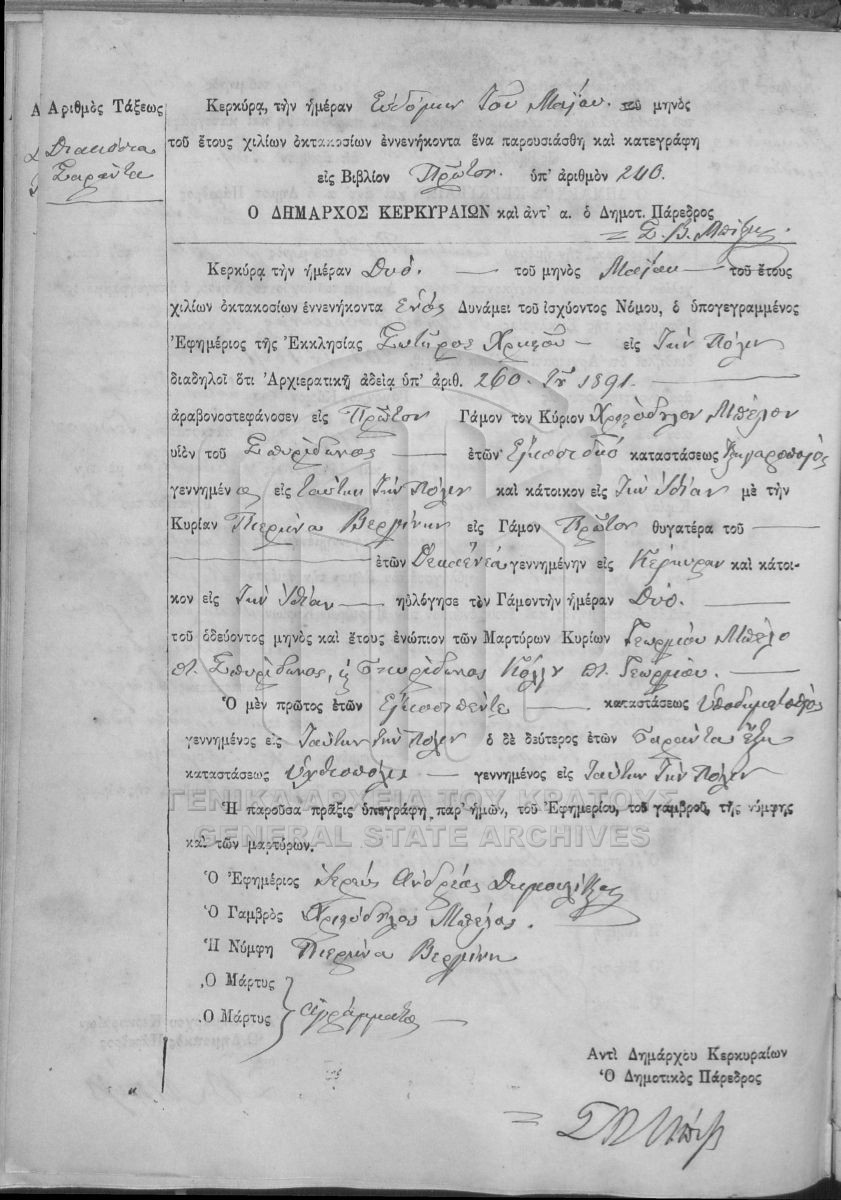 Ἀριθμὸς Τάξεως
Διακόσια
Σαράντα
Κερκύρᾳ, τὴν ἡμέραν Ἑβδόμην Τοῦ Μαΐου τοῦ μηνὸς
τοῦ ἔτους χιλίων ὀκτακοσίων ἐννενήκοντα ἕνα παρουσιάσθη καὶ κατεγράφη
εἰς Βιβλίον Πρῶτον. ὑπ' ἀριθμὸν 240.
Ο ΔΗΜΑΡΧΟΣ ΚΕΡΚΥΡΑΙΩΝ καὶ ἀντ' α. ὁ Δημοτ. Πάρεδρος
Σ. Β.
Κερκύρᾳ τὴν ἡμέραν Δυό. τοῦ μηνὸς Μαΐου τοῦ ἔτους
χιλίων ὀκτακοσίων ἐννενήκοντα ἑνός Δυνάμει τοῦ ἰσχύοντος Νόμου, ὁ ὑπογεγραμμένος
Ἐφημέριος τῆς Ἐκκλησίας Σωτῆρος Χριστοῦ εἰς Τὴν Πόλιν
διαδηλοῖ ὅτι Ἀρχιερατικῇ ἀδείᾳ ὑπ' ἀριθ. 260. 1891.
ἀραβονοστεφάνοσεν εἰς Πρῶτον Γάμον τὸν Κύριον Χριστόδηλον Μπέλον
υἱὸν τοῦ Σπυρίδωνος ἐτῶν Εἴκοσι δυό καταστάσεως
γεννημένος εἰς ταύτην Τὴν Πόλιν καὶ κάτοικον εἰς Τὴν Ἰδίαν μὲ τὴν
Κυρίαν Πιερίνα Βερμίνη εἰς Γάμον Πρῶτον θυγατέρα τοῦ
ἐτῶν Δεκαεννέα γεννημένην εἰς Κέρκυραν καὶ κάτοι-
κον εἰς Τὴν Ἰδίαν ηὐλόγησε τὸν Γάμον τὴν ἡμέραν Δυό.
τοῦ ὁδεύοντος μηνὸς καὶ ἔτους ἐνώπιον τῶν Μαρτύρων Κυρίων Γεωργίου Μπέλο
π. Σπυρίδωνος, Σπυρίδωνος Κόλλη π. Γεωργίου.
Ὁ μὲν πρῶτος ἐτῶν Εἴκοσι πέντε καταστάσεως Ὑποδηματοποιός
γεννημένος εἰς Ταύτην τὴν Πόλιν ὁ δὲ δεύτερος ἐτῶν Σαράντα ἕξη
καταστάσεως Ἰχθυοπώλης γεννημένος εἰς Ταύτην Τὴν Πόλιν
ΓΕΝΙΚΑ ΑΡΧΕΙΑ ΤΟΥ ΚΡΑΤΟΥΣ
Ἡ παροῦσα πρᾶξις ὑπεγράφη παρ' ἡμῶν, τοῦ Ἐφημερίου, τοῦ γαμβροῦ, τῆς νύμφης
GENERAL STATE ARCHIVES
καὶ τῶν μαρτύρων.
Ὁ Ἐφημέριος Ἱερεύς Ἀνδρέας
Ὁ Γαμβρὸς Χριστόδηλος Μπέλος.
Ἡ Νύμφη Πιερίνα Βερμίνη
Ὁ Μάρτυς
Ὁ Μάρτυς ἀγράμματοι
Ἀντὶ Δημάρχου Κερκυραίων
Ὁ Δημοτικὸς Πάρεδρος